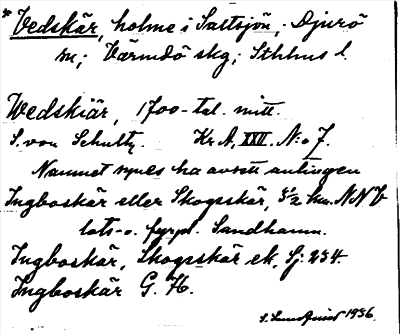 * Vedskär, holme i Saltsjön, Djurö
sn; Värmdö skg; Sthlms l.
Wedskiär, 1700-tal. mitt.
S. von Schultz. Kr. A, XXII. N:o 7.
Namnet synes ha avsett antingen
Ingboskär eller Skogsskär, 3½ km. NNV
lots- o. fyrpl. Sandhamn.
Ingboskär, Skogsskär ek. Sj: 234.
Ingboskär G. K.
1936.